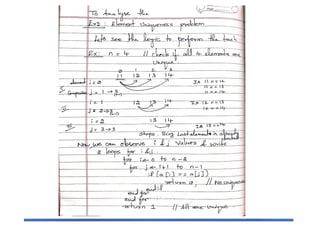 To analyse the
Ex3: Element Uniqueness problem
Lets see the logic to perform the task
Ex: n = 4 // check if all 4 elements are
Unique
0 1 2 3
11 12 13 14
element i = 0
j = 1 → 3
i = 1 12 13 14
j = 2 → 3
i = 2 13 14
j = 3 → 3
stops. Bcoz last element is already
Now, we can observe i & j values & write
2 loops for i & j.
for i ← 0 to n - 2
for j ← i+1 to n - 1
if (a[i] == a[j])
return 0; // No unique
end if
end for
end for
return 1 // All are Unique